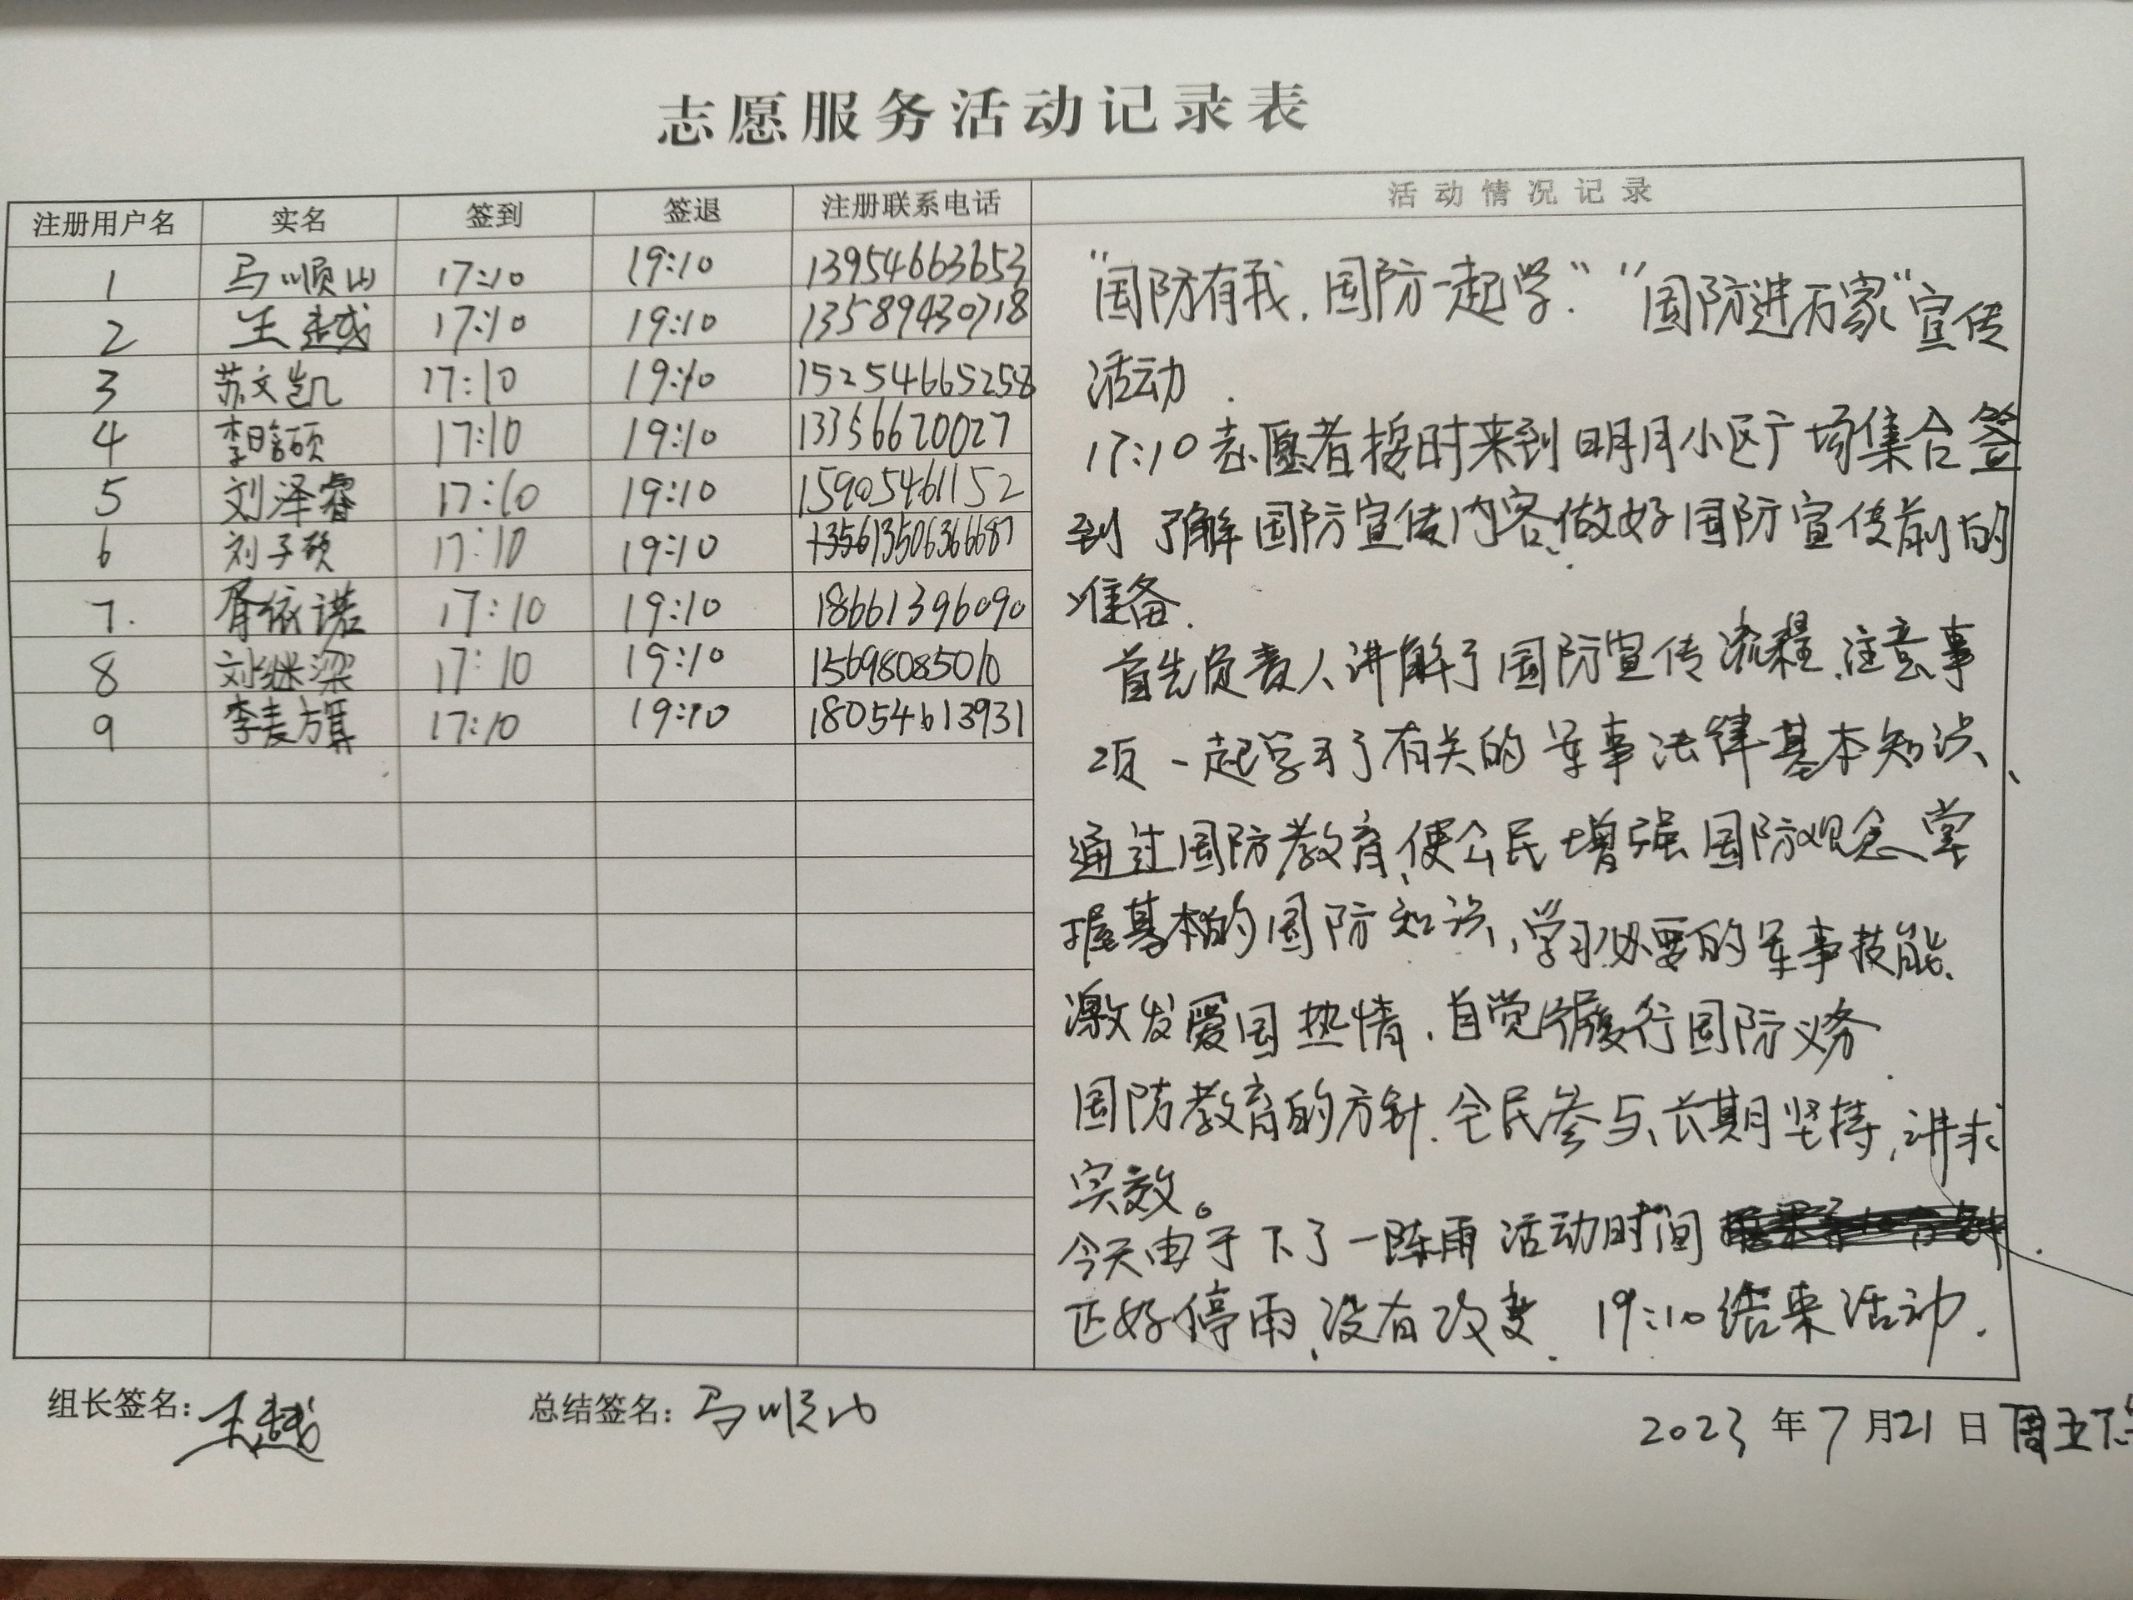 志愿服务活动记录表
注册用户名 实名 签到 签退 注册联系电话 活动情况记录
1 马顺山 17:10 19:10 13954663653
2 王越 17:10 19:10 13589430718
3 苏文凯 17:10 19:10 15254665258
4 李晗硕 17:10 19:10 13356620027
5 刘泽睿 17:10 19:10 15905461152
6 刘子硕 17:10 19:10
7. 胥依诺 17:10 19:10 18661396090
8 刘继梁 17:10 19:10 15698085010
9 李麦旗 17:10 19:10 18054613931
“国防有我,国防一起学.”“国防进万家”宣传
活动.
17:10志愿者按时来到明月小区广场集合签
到 了解国防宣传内容、做好国防宣传前的
准备.
首先负责人讲解了国防宣传流程、注意事
项 一起学习了有关的军事法律基本知识、
通过国防教育、使公民增强国防观念、掌
握基本的国防知识,学习必要的军事技能、
激发爱国热情,自觉履行国防义务.
国防教育的方针.全民参与、长期坚持,讲求
实效。
今天由于下了一阵雨 活动时间
正好停雨、没有改变. 19:10结束活动.
组长签名:王越 总结签名:马顺山 2023年7月21日 周五下